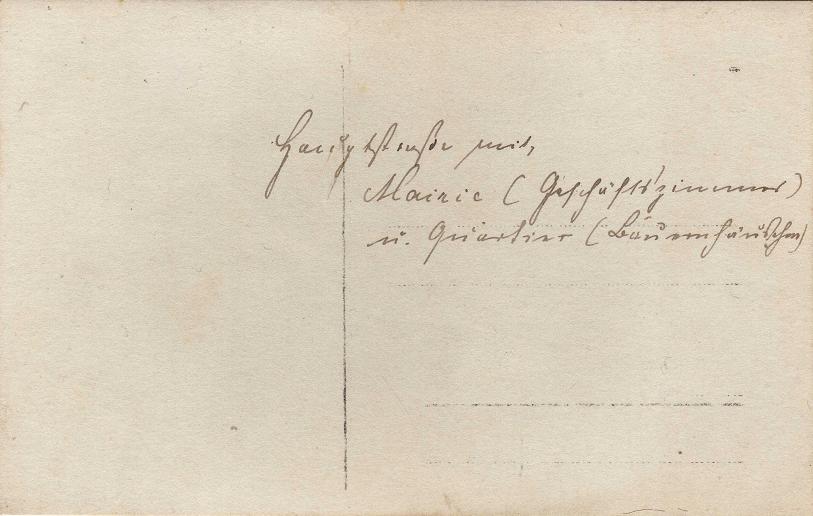 Hauptstraße mit,
Mairie (Geschäftszimmer)
u. Quartier (Bauernhäuschen)